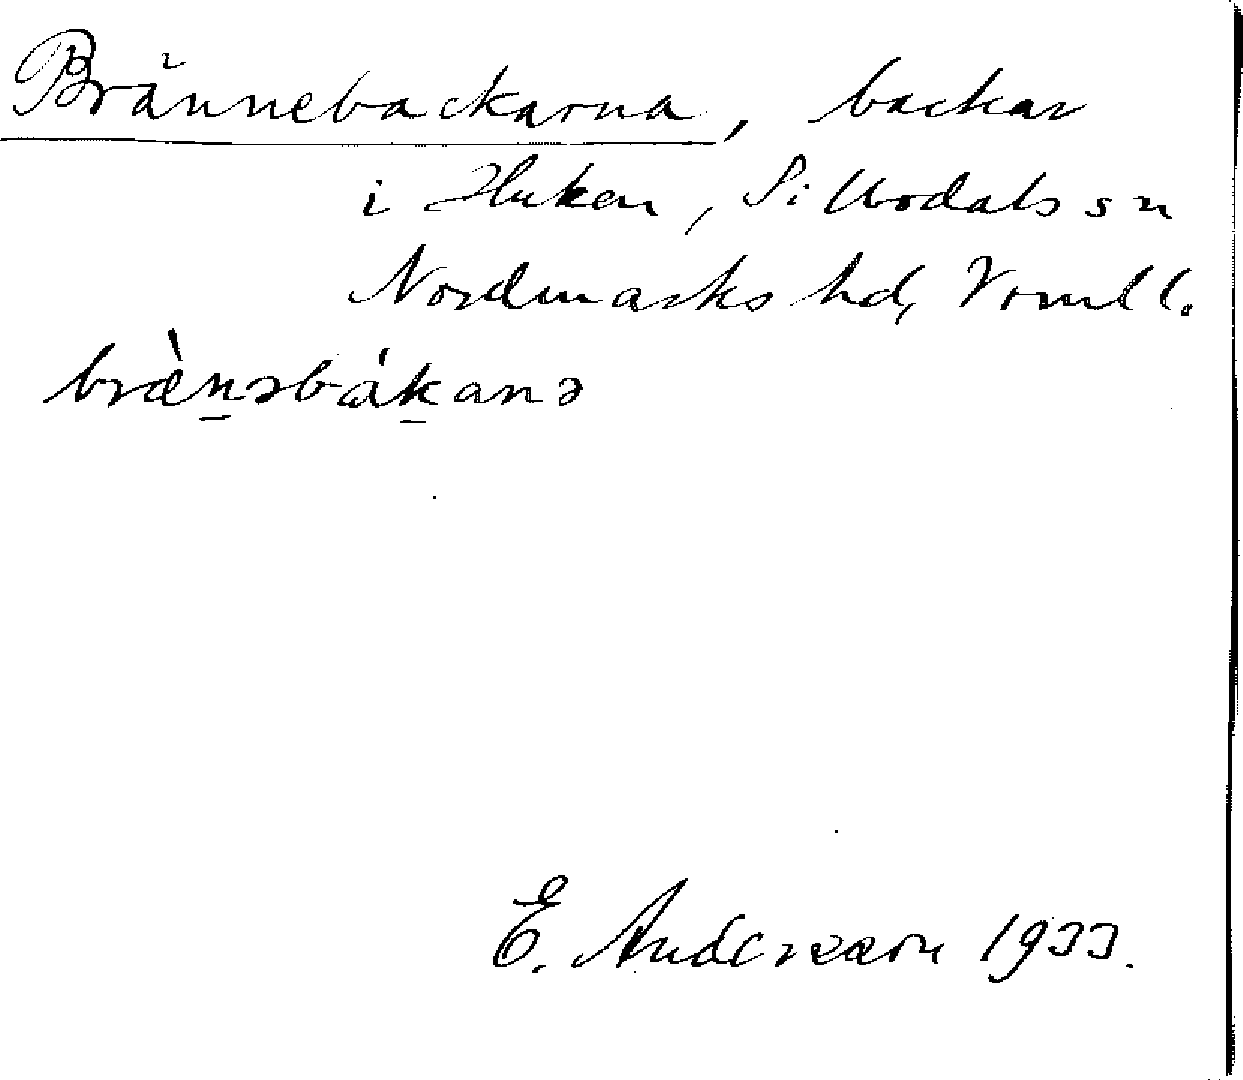 Brännebackarna, backar
i Huken, Sillbodals sn
Nordmarks hd, Vrml l.
bræ̀n̲əbák̲anə
E. Andersson 1933.